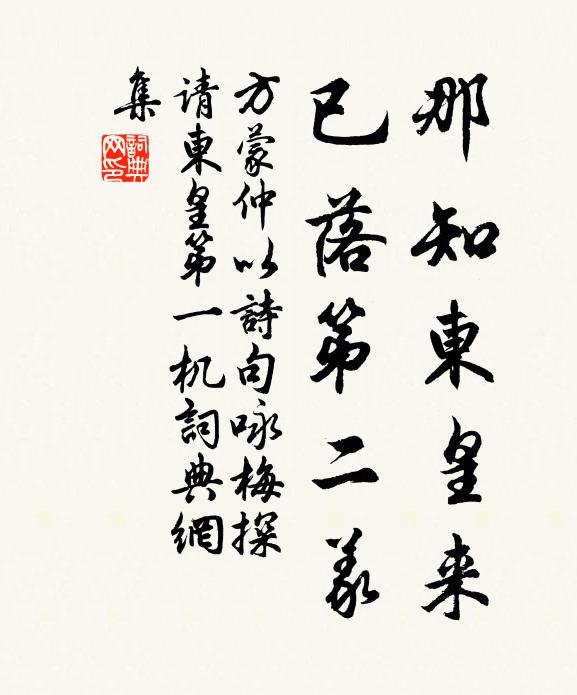 那知東皇来
已落第二義
方蒙仲以詩句咏梅探
请東皇第一机詞典網
集
詞典
网印